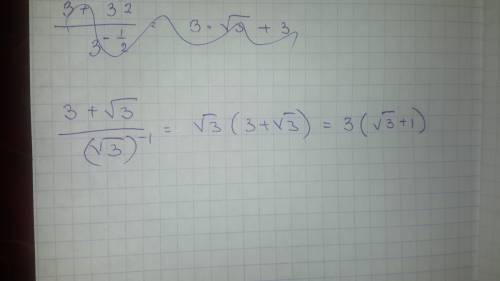 3 + 3 2 / 3^{-1/2} = 3 · √3 + 3
3 + √3 / (√3)^{-1} = √3 (3 + √3) = 3 (√3 + 1)